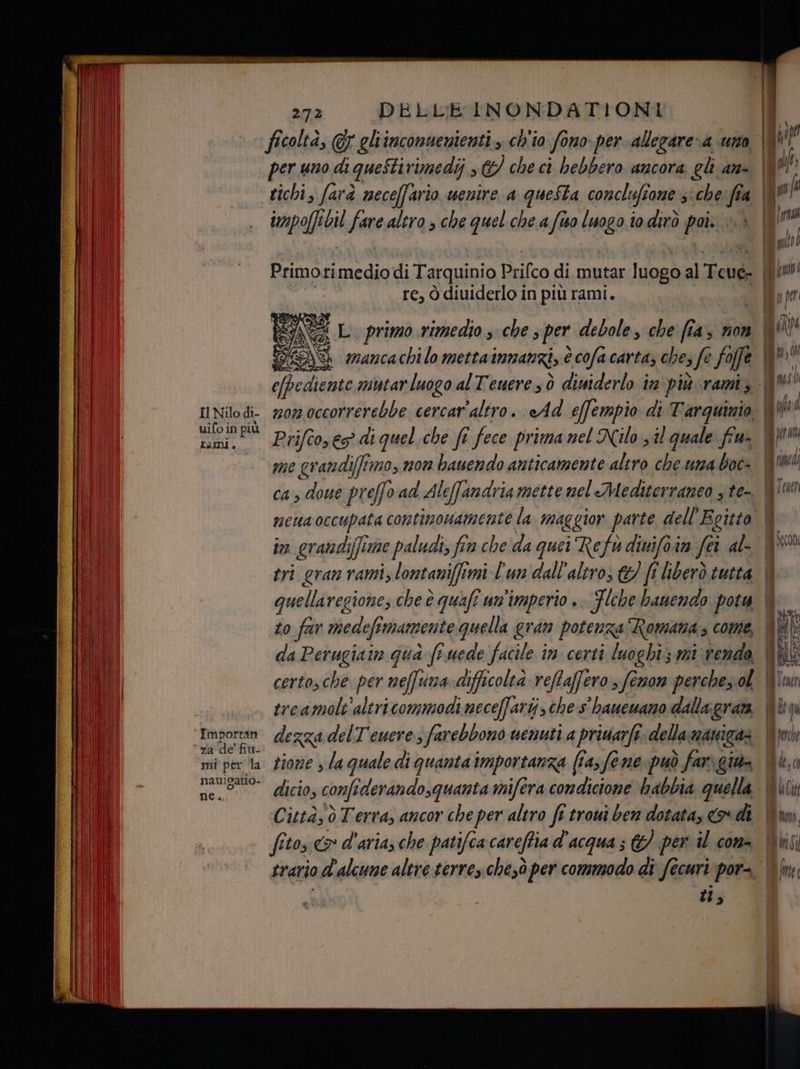 272 DELLE INONDATIONI
ficoltà, & gli inconuenienti, ch'io ſono per allegare a uno
per uno di queſti rimedij, & che ci hebbero ancora gli an-
tichi, ſarà neceſſario uenire a queſta concluſione, che ſia
impoſſibil fare altro, che quel che a ſuo luogo io dirò poi.
Primo rimedio di Tarquinio Priſco di mutar luogo al Teue-
re, ò diuiderlo in più rami.
IL primo rimedio, che, per debole, che ſia, non
manca chi lo metta innanzi, è coſa carta, che, ſe foſſe
eſpediente mutar luogo al Teuere, ò diuiderlo in più rami,
Il Nilo di-
uiſo in più
rami.
non occorrerebbe cercar'altro. Ad eſſempio di Tarquinio
Priſco, & di quel che ſi fece prima nel Nilo, il quale fiu-
me grandiſſimo, non hauendo anticamente altro che una boc-
ca, doue preſſo ad Aleſſandria mette nel Mediterraneo, te-
neua occupata continouamente la maggior parte dell'Egitto
in grandiſſime paludi, fin che da quei Re fù diuiſo in ſei al-
tri gran rami, lontaniſſimi l'un dall'altro, & ſi liberò tutta
quella regione, che è quaſi un'imperio. Ilche hauendo potu
to far medeſimamente quella gran potenza Romana, come,
da Perugia in quà ſi uede facile in certi luoghi; mi rendo
certo, che per neſſuna difficoltà reſtaſſero, ſe non perche, ol
tre a molt'altri commodi neceſſarij, che s'haueuano dalla gran
Importan
za de' fiu-
mi per la
nauigatio-
ne.
dezza del Teuere, ſarebbono uenuti a priuarſi della nauiga-
tione, la quale di quanta importanza ſia, ſe ne può far giu-
dicio, conſiderando, quanta miſera condicione habbia quella
Città, ò Terra, ancor che per altro ſi troui ben dotata, & di
ſito, & d'aria, che patiſca careſtia d'acqua; & per il con-
trario d'alcune altre terre, che, ò per commodo di ſecuri por-
ti,